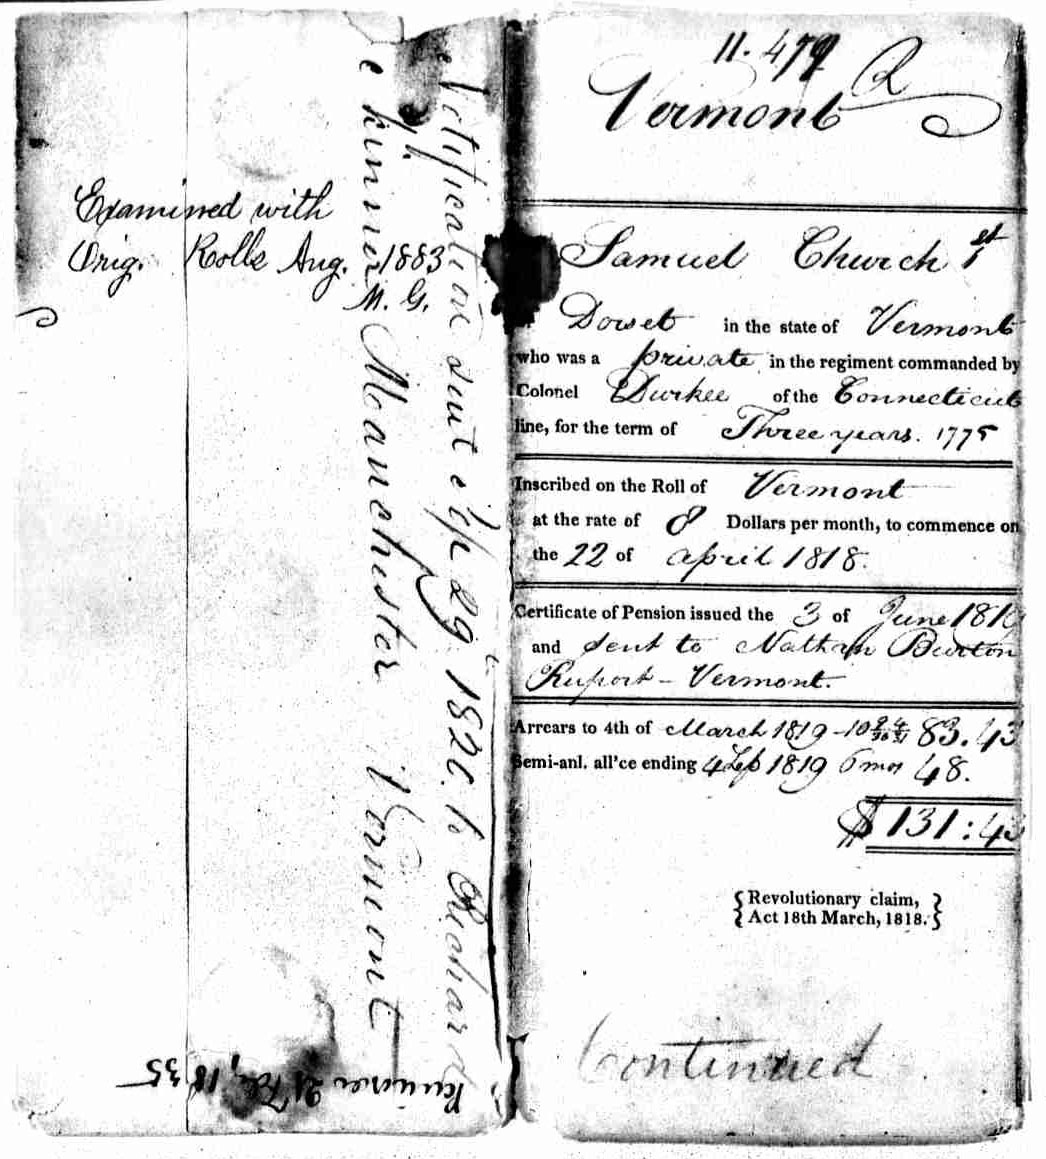 Examined with
Orig. Rolls Aug. 1883
M. G.
Notification sent Sep 29. 1820. to Richard
Skinner Manchister Vermont
Skinner 21 Feb, 1835
11.479
Vermont
Samuel Church 1st
Dorset in the state of Vermont
who was a private in the regiment commanded by
Colonel Durkee of the Connecticut
line, for the term of Three years. 1775
Inscribed on the Roll of Vermont
at the rate of 8 Dollars per month, to commence on
the 22 of april 1818.
Certificate of Pension issued the 3 of June 1819
and sent to Nathan Burton
Rupert - Vermont.
Arrears to 4th of March 1819 83.43
Semi-anl. all'ce ending 4 Sep 1819 6 mos 48.
$131:43
{Revolutionary claim,
Act 18th March, 1818.}
Continued